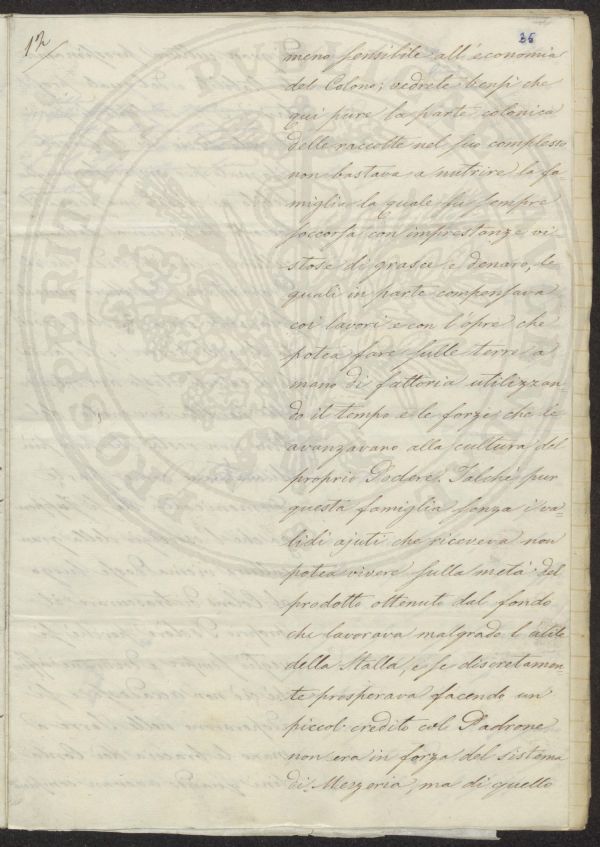 12
36
meno sensibile all'economia
del Colono; vedrete bensì che
qui pure la parte colonica
delle raccolte nel suo complesso
non bastava a nutrire la fa=
miglia la quale fu sempre
soccorsa con imprestanze vi=
stose di grasce e denaro, le
quali in parte compensava
coi lavori e con l'opre che
potea fare sulle terre a
mano di fattoria utilizzan=
do il tempo e le forze che le
avanzavano alla cultura del
proprio Podere. Talchè pur
questa famiglia senza i va=
lidi ajuti che riceveva non
potea vivere sulla metà del
prodotto ottenuto dal fondo
che lavorava malgrado l'utile
della Stalla, e se discretamen=
te prosperava facendo un
piccol credito col Padrone
non era in forza del sistema
di Mezzeria, ma di quello
PROSPERITATI PUBLICAE